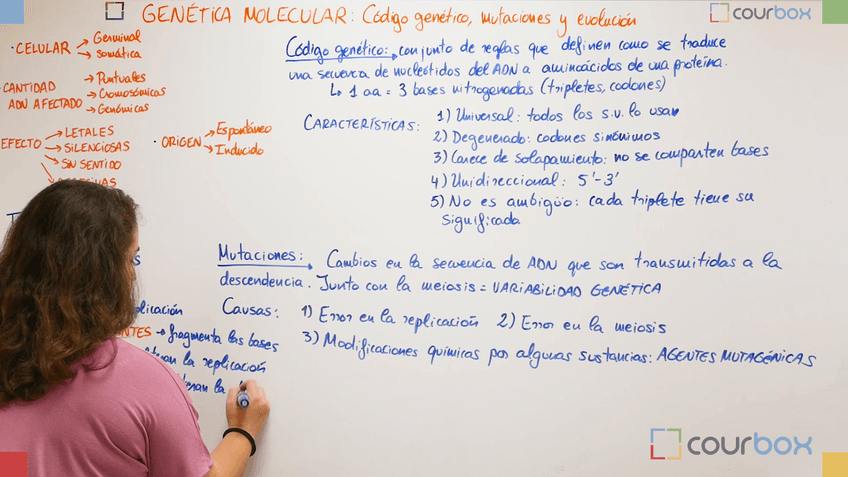 GENÉTICA MOLECULAR: Código genético, mutaciones y evolución
courbox
· CELULAR → Germinal
→ Somática
CANTIDAD ADN AFECTADO → Puntuales
→ Cromosómicas
→ Genómicas
EFECTO → LETALES
→ SILENCIOSAS
→ SIN SENTIDO
· ORIGEN → Espontáneo
→ Inducido
Código genético: conjunto de reglas que definen como se traduce
una secuencia de nucleótidos del ADN a aminoácidos de una proteína.
↳ 1 aa = 3 bases nitrogenadas (tripletes, codones)
CARACTERÍSTICAS: 1) Universal: todos los s.v. lo usan
2) Degenerado: codones sinónimos
3) Carece de solapamiento: no se comparten bases
4) Unidireccional: 5'-3'
5) No es ambigüo: cada triplete tiene su
significada
Mutaciones: Cambios en la secuencia de ADN que son transmitidas a la
descendencia. Junto con la meiosis = VARIABILIDAD GENÉTICA
Causas: 1) Error en la replicación 2) Error en la meiosis
3) Modificaciones químicas por algunas sustancias: AGENTES MUTAGÉNICAS
→ fragmenta las bases
la replicación
la
courbox